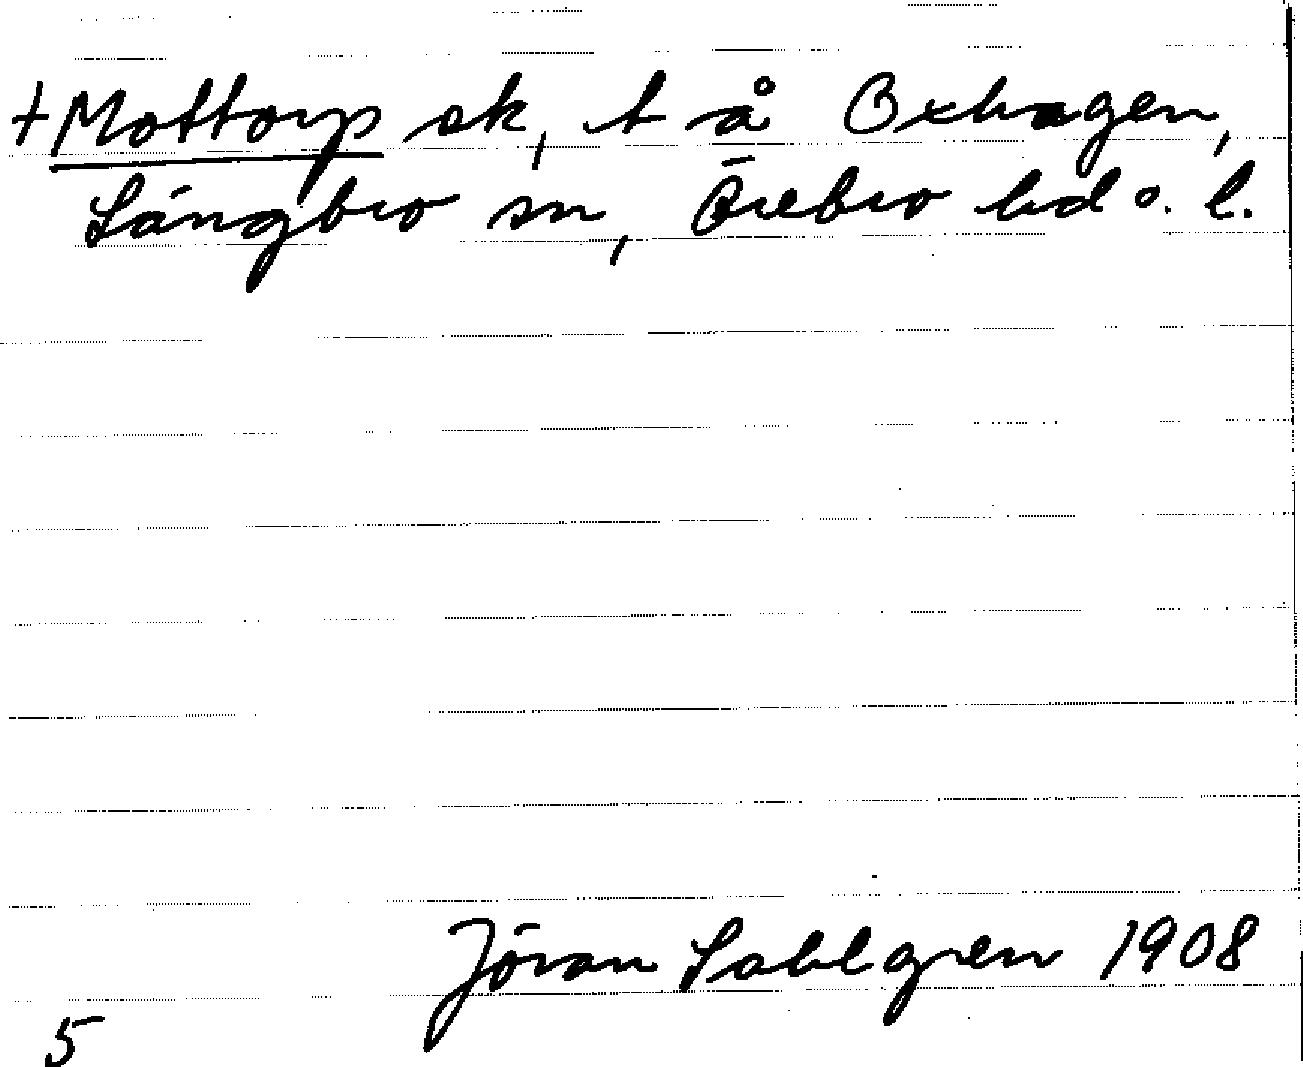 +Mottorp sk, t å Oxhagen,
Längbro sn, Örebro hd o. l.
Jöran Sahlgren 1908
5